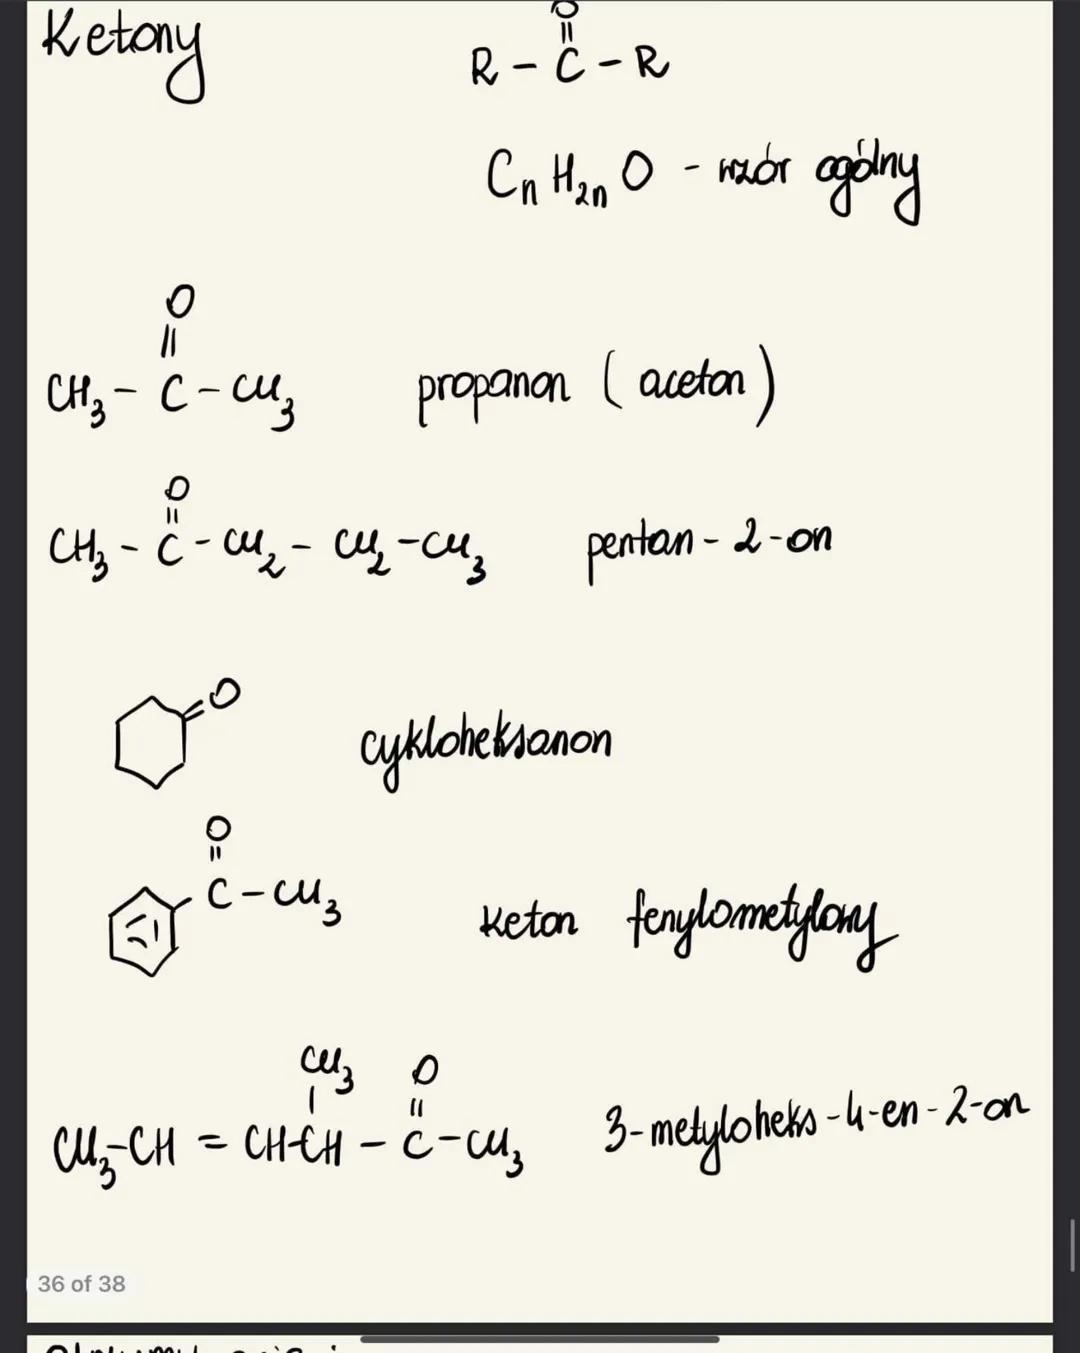 Ketony
O
||
R - C - R
CnH2nO - wzór ogólny
O
||
CH3 - C - CH3 propanon (aceton)
O
||
CH3 - C - CH2 - CH2 - CH3 pentan-2-on
=O
cykloheksanon
O
||
C - CH3 keton fenylometylowy
CH3 O
| ||
CH3-CH = CH-CH - C - CH3 3-metyloheks-4-en-2-on
36 of 38